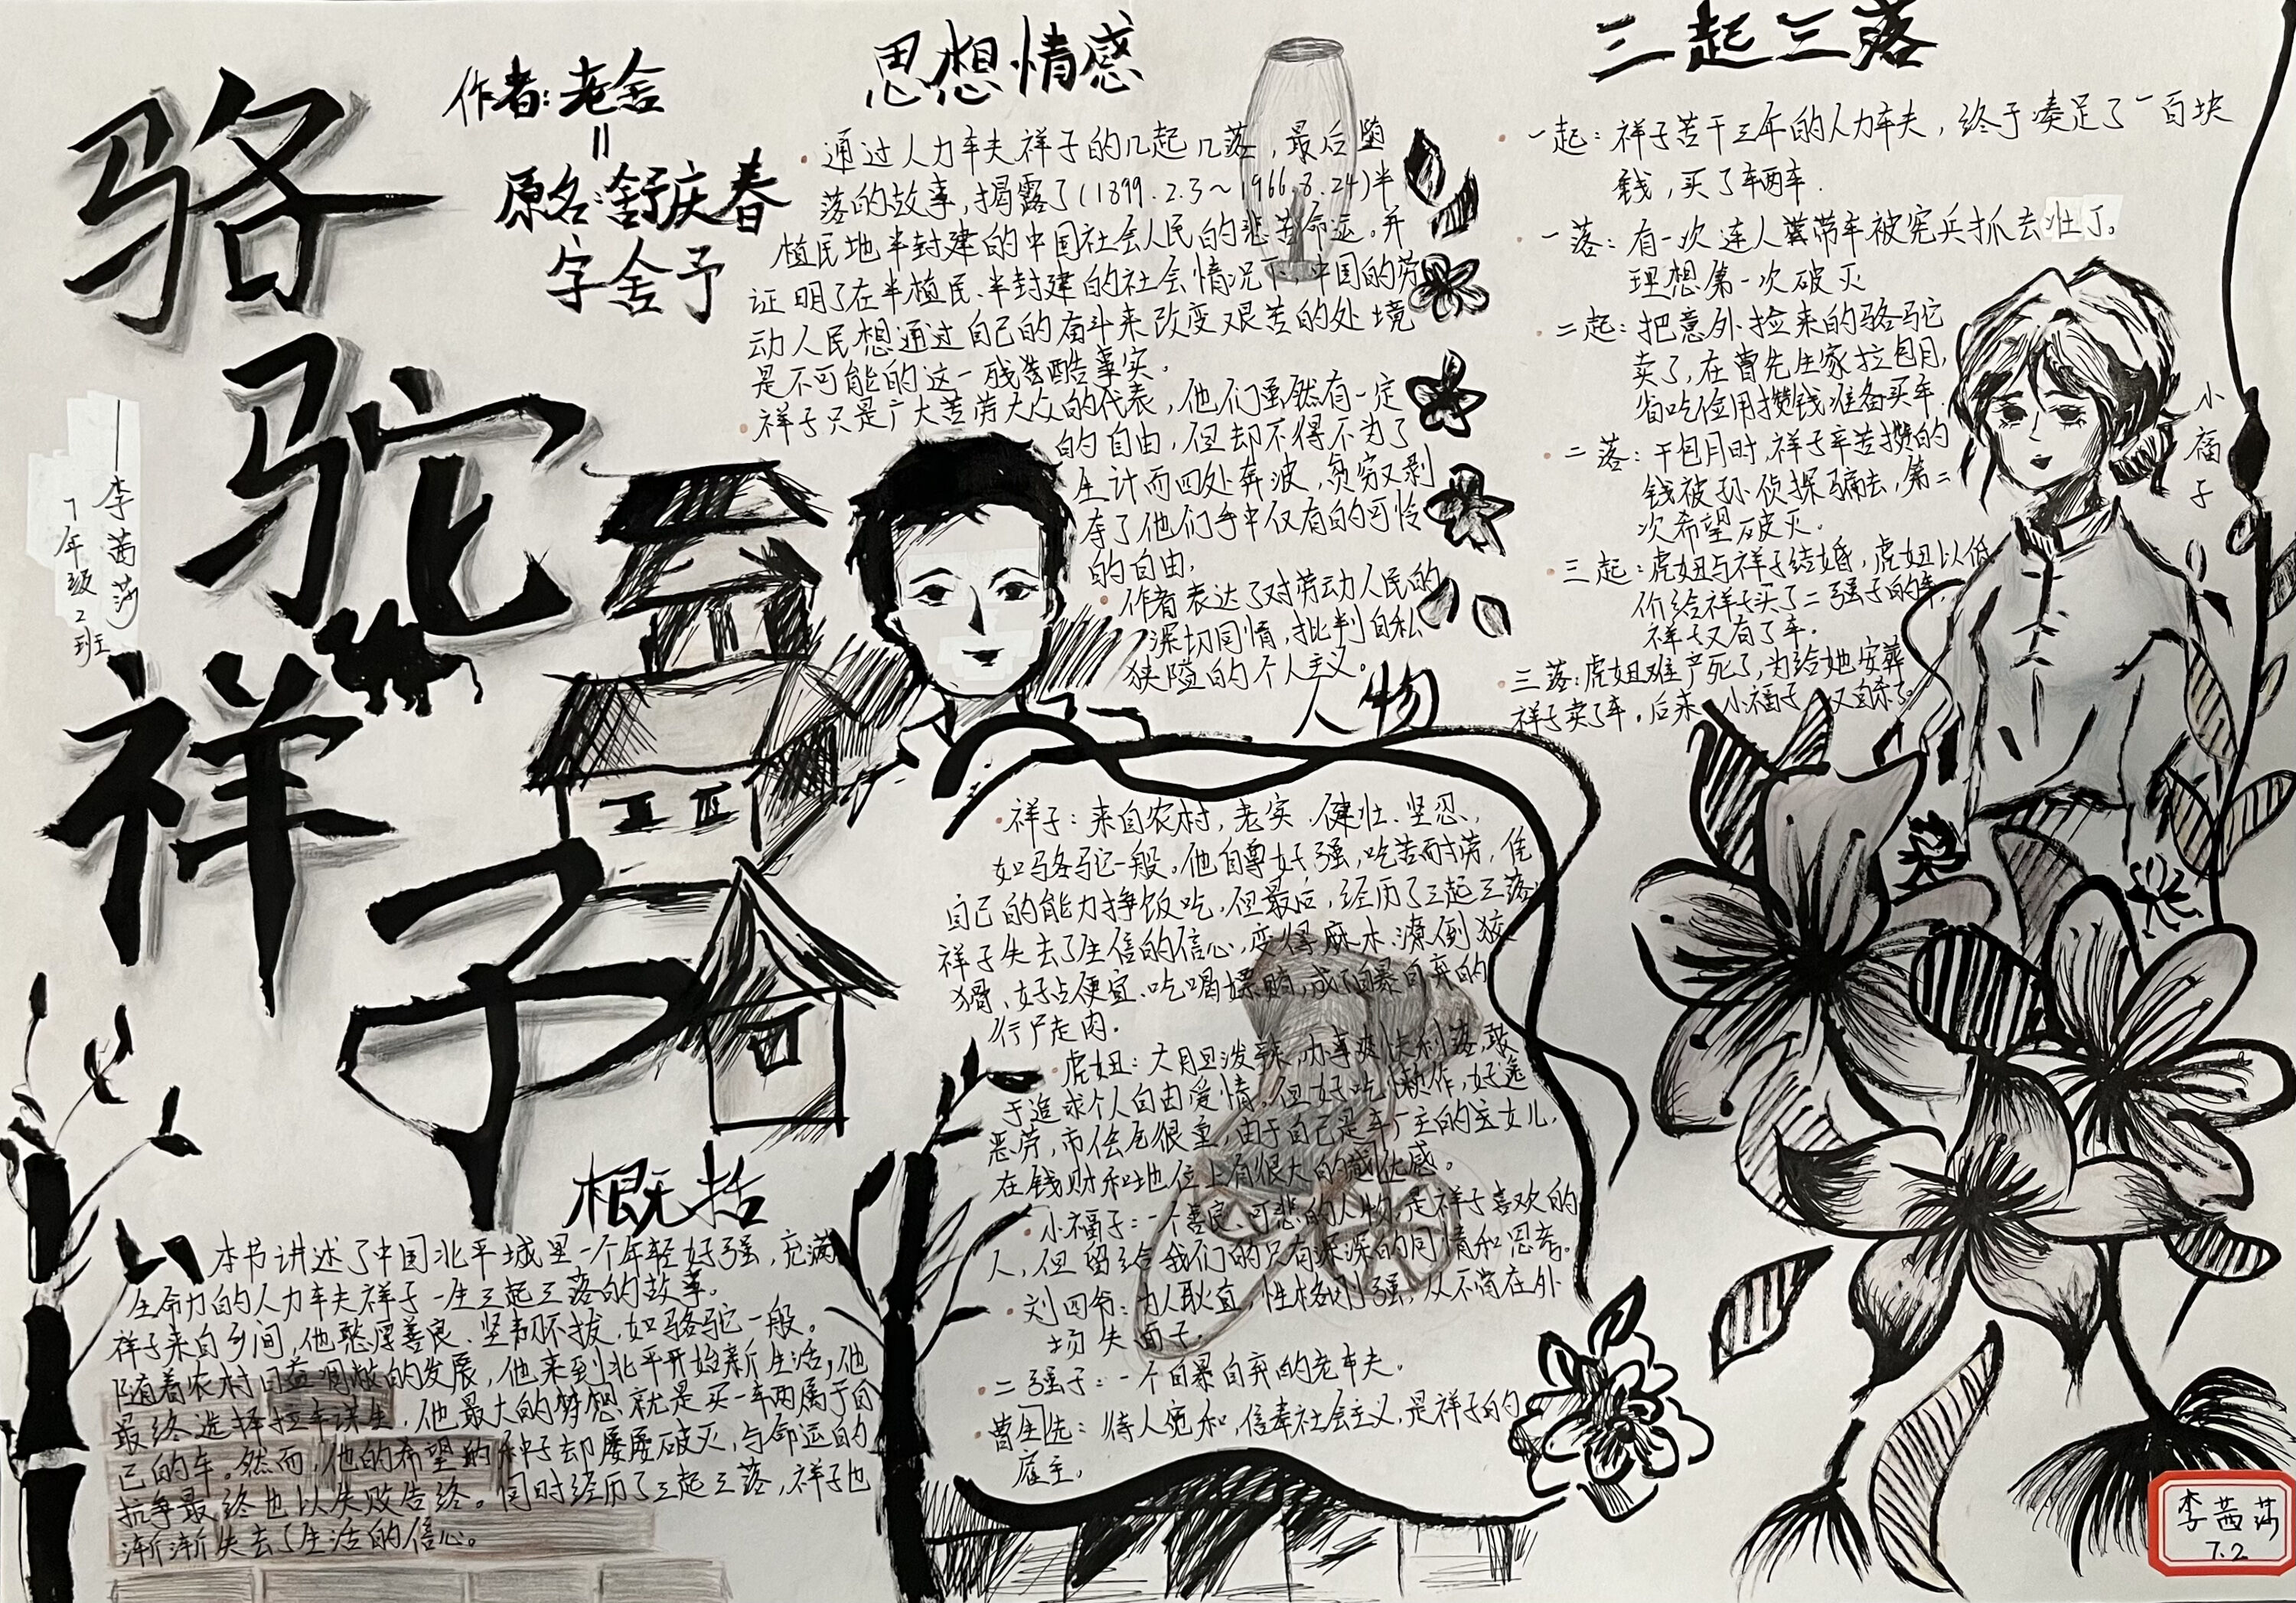 骆
驼
祥
子
作者:老舍
原名:舒庆春
字舍予
——李茜莎
7年级2班
思想情感
·通过人力车夫祥子的几起几落,最后堕
落的故事,揭露了(1899.2.3~1966.8.24)半
植民地半封建的中国社会人民的悲苦命运。并
证明了在半植民、半封建的社会情况下,中国的劳
动人民想通过自己的奋斗来改变艰苦的处境
是不可能的这一残酷事实。
·祥子只是广大苦劳大众的代表,他们虽然有一定
的自由,但却不得不为了
生计而四处奔波,贫穷又剥
夺了他们手中仅有的可怜
的自由.
·作者表达了对劳动人民的
深切同情,批判自私
狭隘的个人主义。
三起三落
·一起:祥子苦干三年的人力车夫,终于凑足了一百块
钱,买了车两车.
·一落:有一次连人带车被宪兵抓去壮丁。
理想第一次破灭
·二起:把意外捡来的骆驼
卖了,在曹先生家拉包月,
省吃俭用攒钱准备买车.
·二落:干包月时,祥子辛苦攒的
钱被孙侦探骗去,第二
次希望破灭.
·三起:虎妞与祥子结婚,虎妞以低
价给祥子买了二强子的车,
祥子又有了车.
·三落:虎妞难产死了,为给她安葬
祥子卖了车。后来,小福子又自杀了。
小福子
人物
·祥子:来自农村,老实、健壮、坚忍,
如骆驼一般。他自尊好强,吃苦耐劳,凭
自己的能力挣饭吃.但最后,经历了三起三落,
祥子失去了生信的信心,变得麻木、潦倒狡
猾、好占便宜、吃喝嫖赌,成了自暴自弃的
行尸走肉.
·虎妞:大胆泼辣,办事爽快利落,敢
于追求个人自由爱情。但好吃懒作,好逸
恶劳,市侩气很重,由于自己是车厂主的女儿,
在钱财和地位上有很大的优感。
·小福子:一个善良、可悲的人物,是祥子喜欢的
人,但留给我们的只有深深的同情和思考。
·刘四爷:为人耿直,性格刚强,从不肯在外
场失面子.
·二强子:一个自暴自弃的老车夫.
·曹先生:待人宽和,信奉社会主义,是祥子的
雇主,
概括
本书讲述了中国北平城里一个年轻好强,充满
生命力的人力车夫祥子一生三起三落的故事。
祥子来自乡间,他憨厚善良、坚韧不拔,如骆驼一般。
随着农村日益凋敝的发展,他来到北平开始新生活,他
最终选择拉车谋生,他最大的梦想就是买一车两属于自
己的车。然而,他的希望的种子却屡屡破灭,与命运的
抗争最终也以失败告终。同时经历了三起三落,祥子也
渐渐失去了生活的信心。
李茜莎
7.2